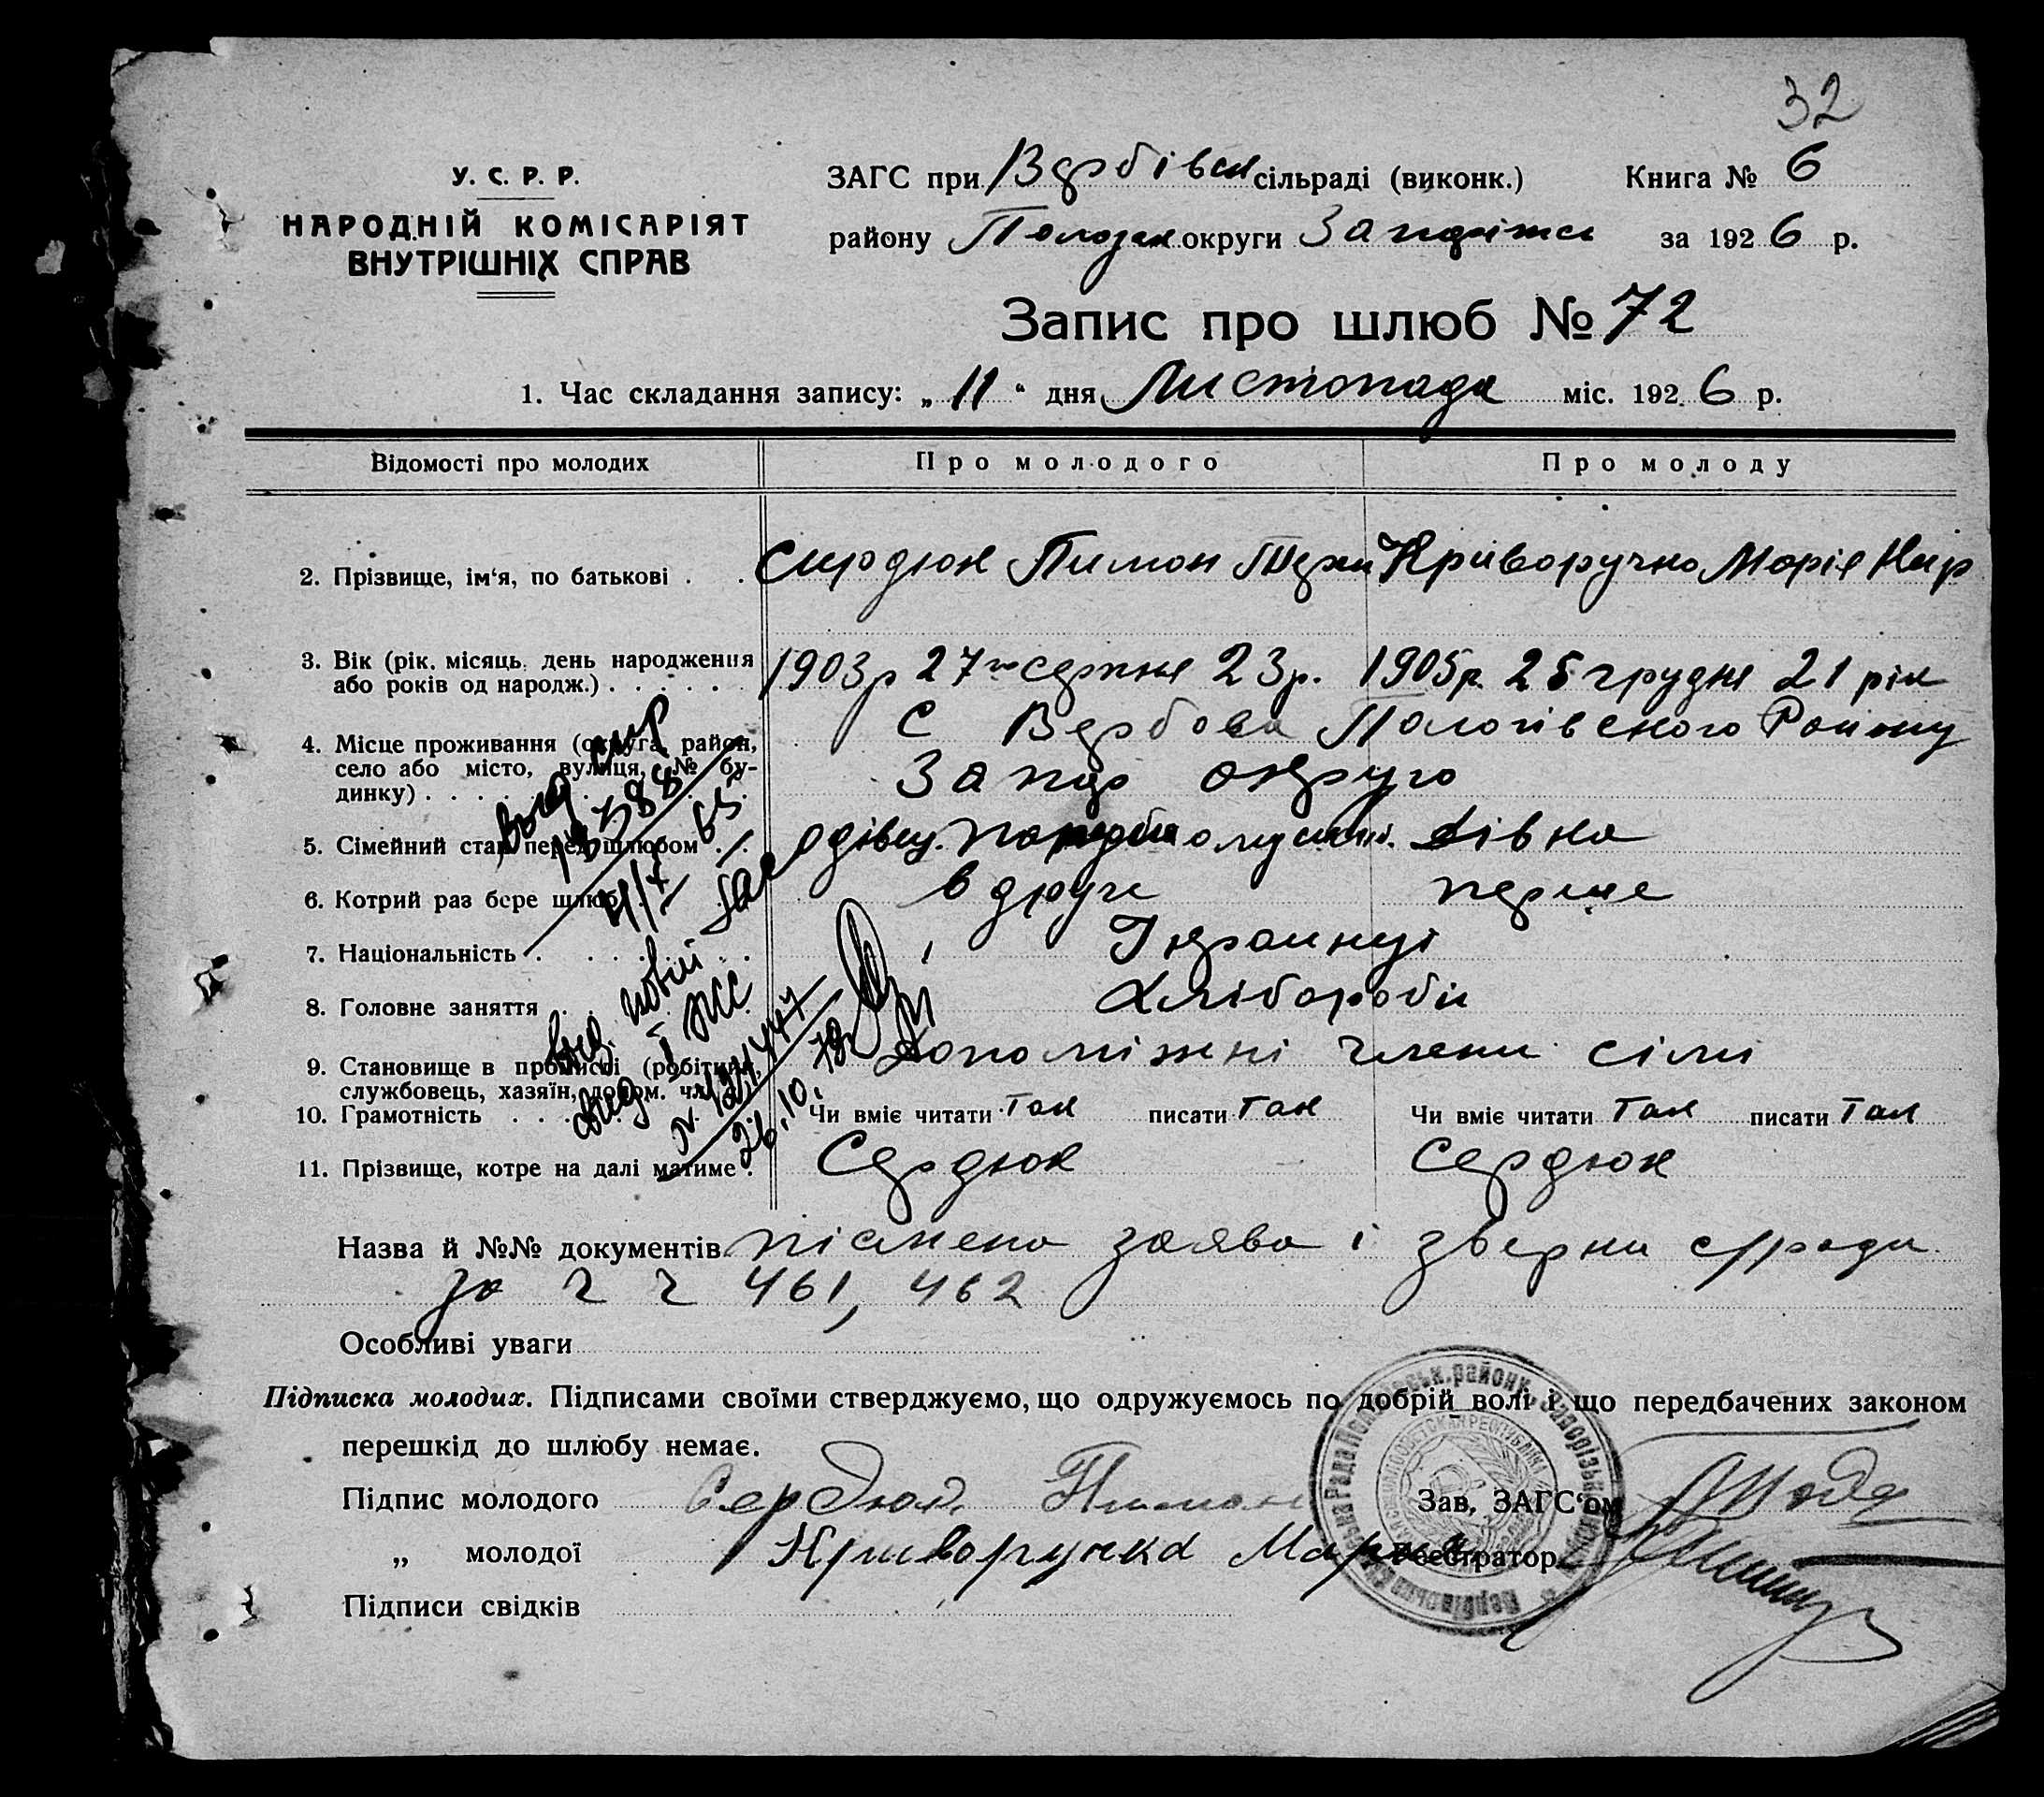 32
У. С. Р. Р.
НАРОДНІЙ КОМІСАРІЯТ
ВНУТРІШНІХ СПРАВ
ЗАГС при Вербівск сільраді (виконк.) Книга № 6
району округи Запоріжс за 1926 р.
Запис про шлюб № 72
1. Час складання запису: „ 11 “ дня Листопада міс. 1926 р.
Відомості про молодих Про молодого Про молоду
2. Прізвище, ім‘я, по батькові . . Сирдюк Пимон Криворучко Марія Кир
3. Вік (рік, місяць, день народження
або років од народж.) . . . . . . 1903р 27го серпня 23р. 1905р. 25 грудня 21 рік
4. Місце проживання (округа, район,
село або місто, вулиця, № бу-
динку) . . . . . . С Вербова Пологівского Району
Запор округо
5. Сімейний стан перед шлюбом . . дівка
6. Котрий раз бере шлюб вдруге перше
7. Національність . Українці
8. Головне заняття . Хлібороби
9. Становище в промислі (робітник,
службовець, хазяїн, допом. чл. Допоміжні члени сімї
10. Грамотність . . . . . Чи вміє читати Так писати Так Чи вміє читати Так писати Так
11. Прізвище, котре на далі матиме . Сердюк Сердюк
выд
№ 388
65
выд. повт
26.10.
Назва й №№ документів пісмена заява і с/ради
за ч ч 461, 462
Особливі уваги
Підписка молодих. Підписами своїми стверджуємо, що одружуємось по добрій волі і що передбачених законом
перешкід до шлюбу немає.
Підпис молодого Сердюк Пимон Зав. ЗАГС‘ом
„ молодої Криворучка Мария Реєстратор
Підписи свідків